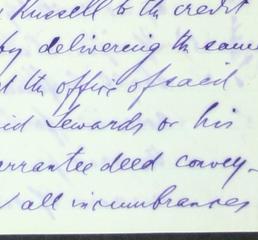 Russell to the credit
by delivering the same
the office of said
Sewards or his
arrantee deed convey-
all incumbrances